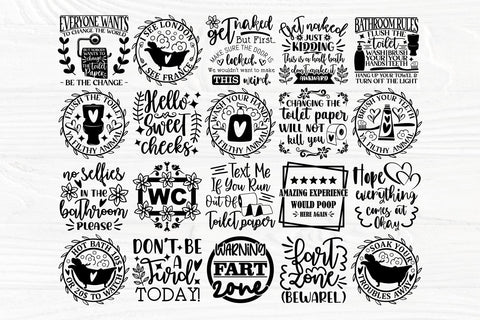 EVERYONE WANTS
TO CHANGE THE WORLD
BUT NOBODY
WANTS TO
change
the Toilet
Paper
BE THE CHANGE
I SEE LONDON
I SEE FRANCE
get naked
But First,
MAKE SURE THE DOOR IS
locked.
We wouldn't want to make
THIS weird.
Get naked
JUST
KIDDING
This is a half bath
that would be
AWKWARD
BATHROOM RULES
FLUSH THE
toilet
WASH BRUSH
YOUR YOUR
HANDS TEETH
HANG UP YOUR TOWEL &
TURN OFF THE LIGHT
FLUSH THE TOILET
YA FILTHY ANIMAL
Hello
Sweet
cheeks
WASH YOUR HANDS
YA FILTHY ANIMAL
CHANGING THE
toilet paper
WILL NOT
kill you
BRUSH YOUR TEETH
YA FILTHY ANIMAL
no selfies
IN THE
bathroom
PLEASE
WC
Text Me
If You Run
Out Of
Toilet paper
AMAZING EXPERIENCE
WOULD POOP
HERE AGAIN
Hope
everything
comes out
Okay
HOT BATH 10$
OR 20$ TO WATCH
DON'T BE
A Turd
TODAY!
WARNING
FART
zone
fart
zone
(BEWARE!)
SOAK YOUR
TROUBLES AWAY